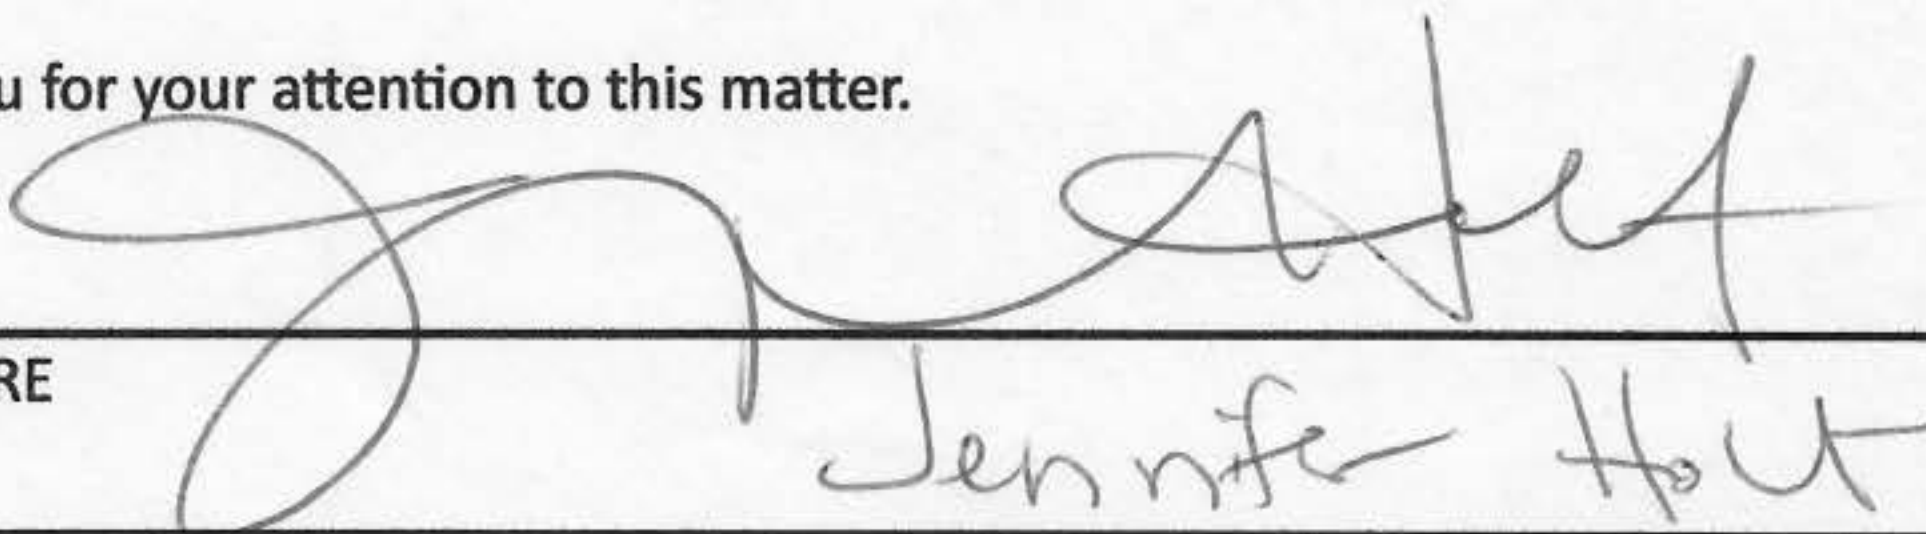 u for your attention to this matter.
RE
Jennifer Holt